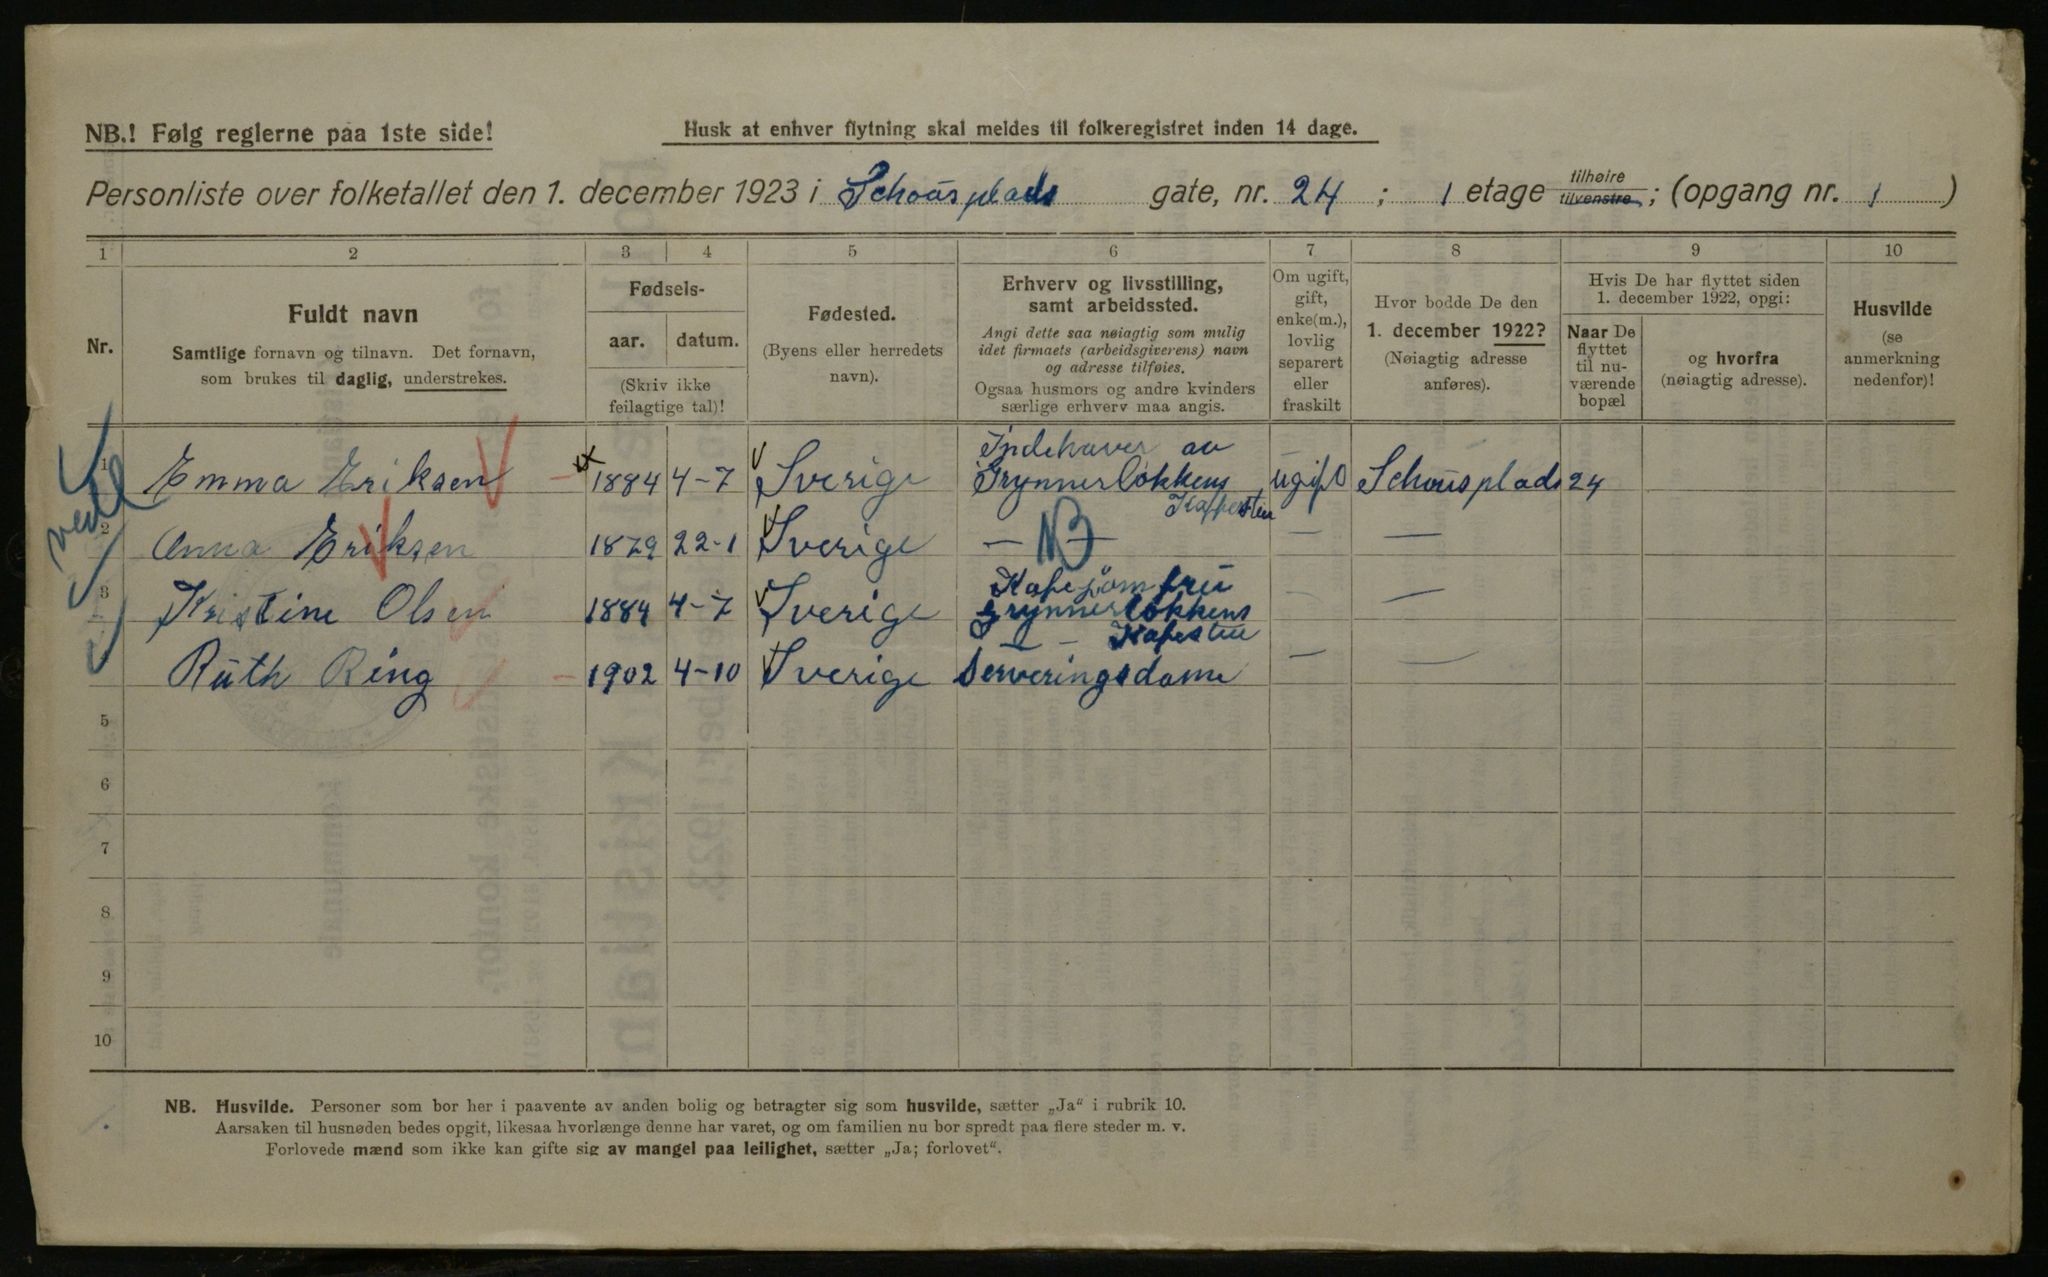 NB.! Følg reglerne paa 1ste side!
Husk at enhver flytning skal meldes til folkeregistret inden 14 dage.
Personliste over folketallet den 1. december 1923 i Schousplads gate, nr. 24 ; 1 etage tilhøire tilvenstre ; (opgang nr. 1 )
1 2 3 4 5 6 7 8 9 10
Nr.
Fuldt navn
Samtlige fornavn og tilnavn. Det fornavn,
som brukes til daglig, understrekes.
Fødsels-
aar. datum.
(Skriv ikke
feilagtige tal)!
Fødested.
(Byens eller herredets
navn).
Erhverv og livsstilling,
samt arbeidssted.
Angi dette saa nøiagtig som mulig
idet firmaets (arbeidsgiverens) navn
og adresse tilføies.
Ogsaa husmors og andre kvinders
særlige erhverv maa angis.
Om ugift,
gift,
enke(m.),
lovlig
separert
eller
fraskilt
Hvor bodde De den
1. december 1922?
(Nøiagtig adresse
anføres).
Hvis De har flyttet siden
1. december 1922, opgi:
Naar De
flyttet
til nu-
værende
bopæl
og hvorfra
(nøiagtig adresse).
Husvilde
(se
anmerkning
nedenfor)!
Indehaver av
1 Emma Eriksen 1884 4-7 Sverige Grynnerløkkens ugift Schousplads 24
Kaffestue
2 Anna Eriksen 1879 22-1 Sverige — NB — — —
Kafejomfru
3 Kristine Olsen 1884 4-7 Sverige Grynnerløkkens — —
Kafestue
Ruth Ring 1902 4-10 Sverige Serveringsdame — —
5
6
7
8
9
10
NB. Husvilde. Personer som bor her i paavente av anden bolig og betragter sig som husvilde, sætter „Ja“ i rubrik 10.
Aarsaken til husnøden bedes opgit, likesaa hvorlænge denne har varet, og om familien nu bor spredt paa flere steder m. v.
Forlovede mænd som ikke kan gifte sig av mangel paa leilighet, sætter „Ja; forlovet“.